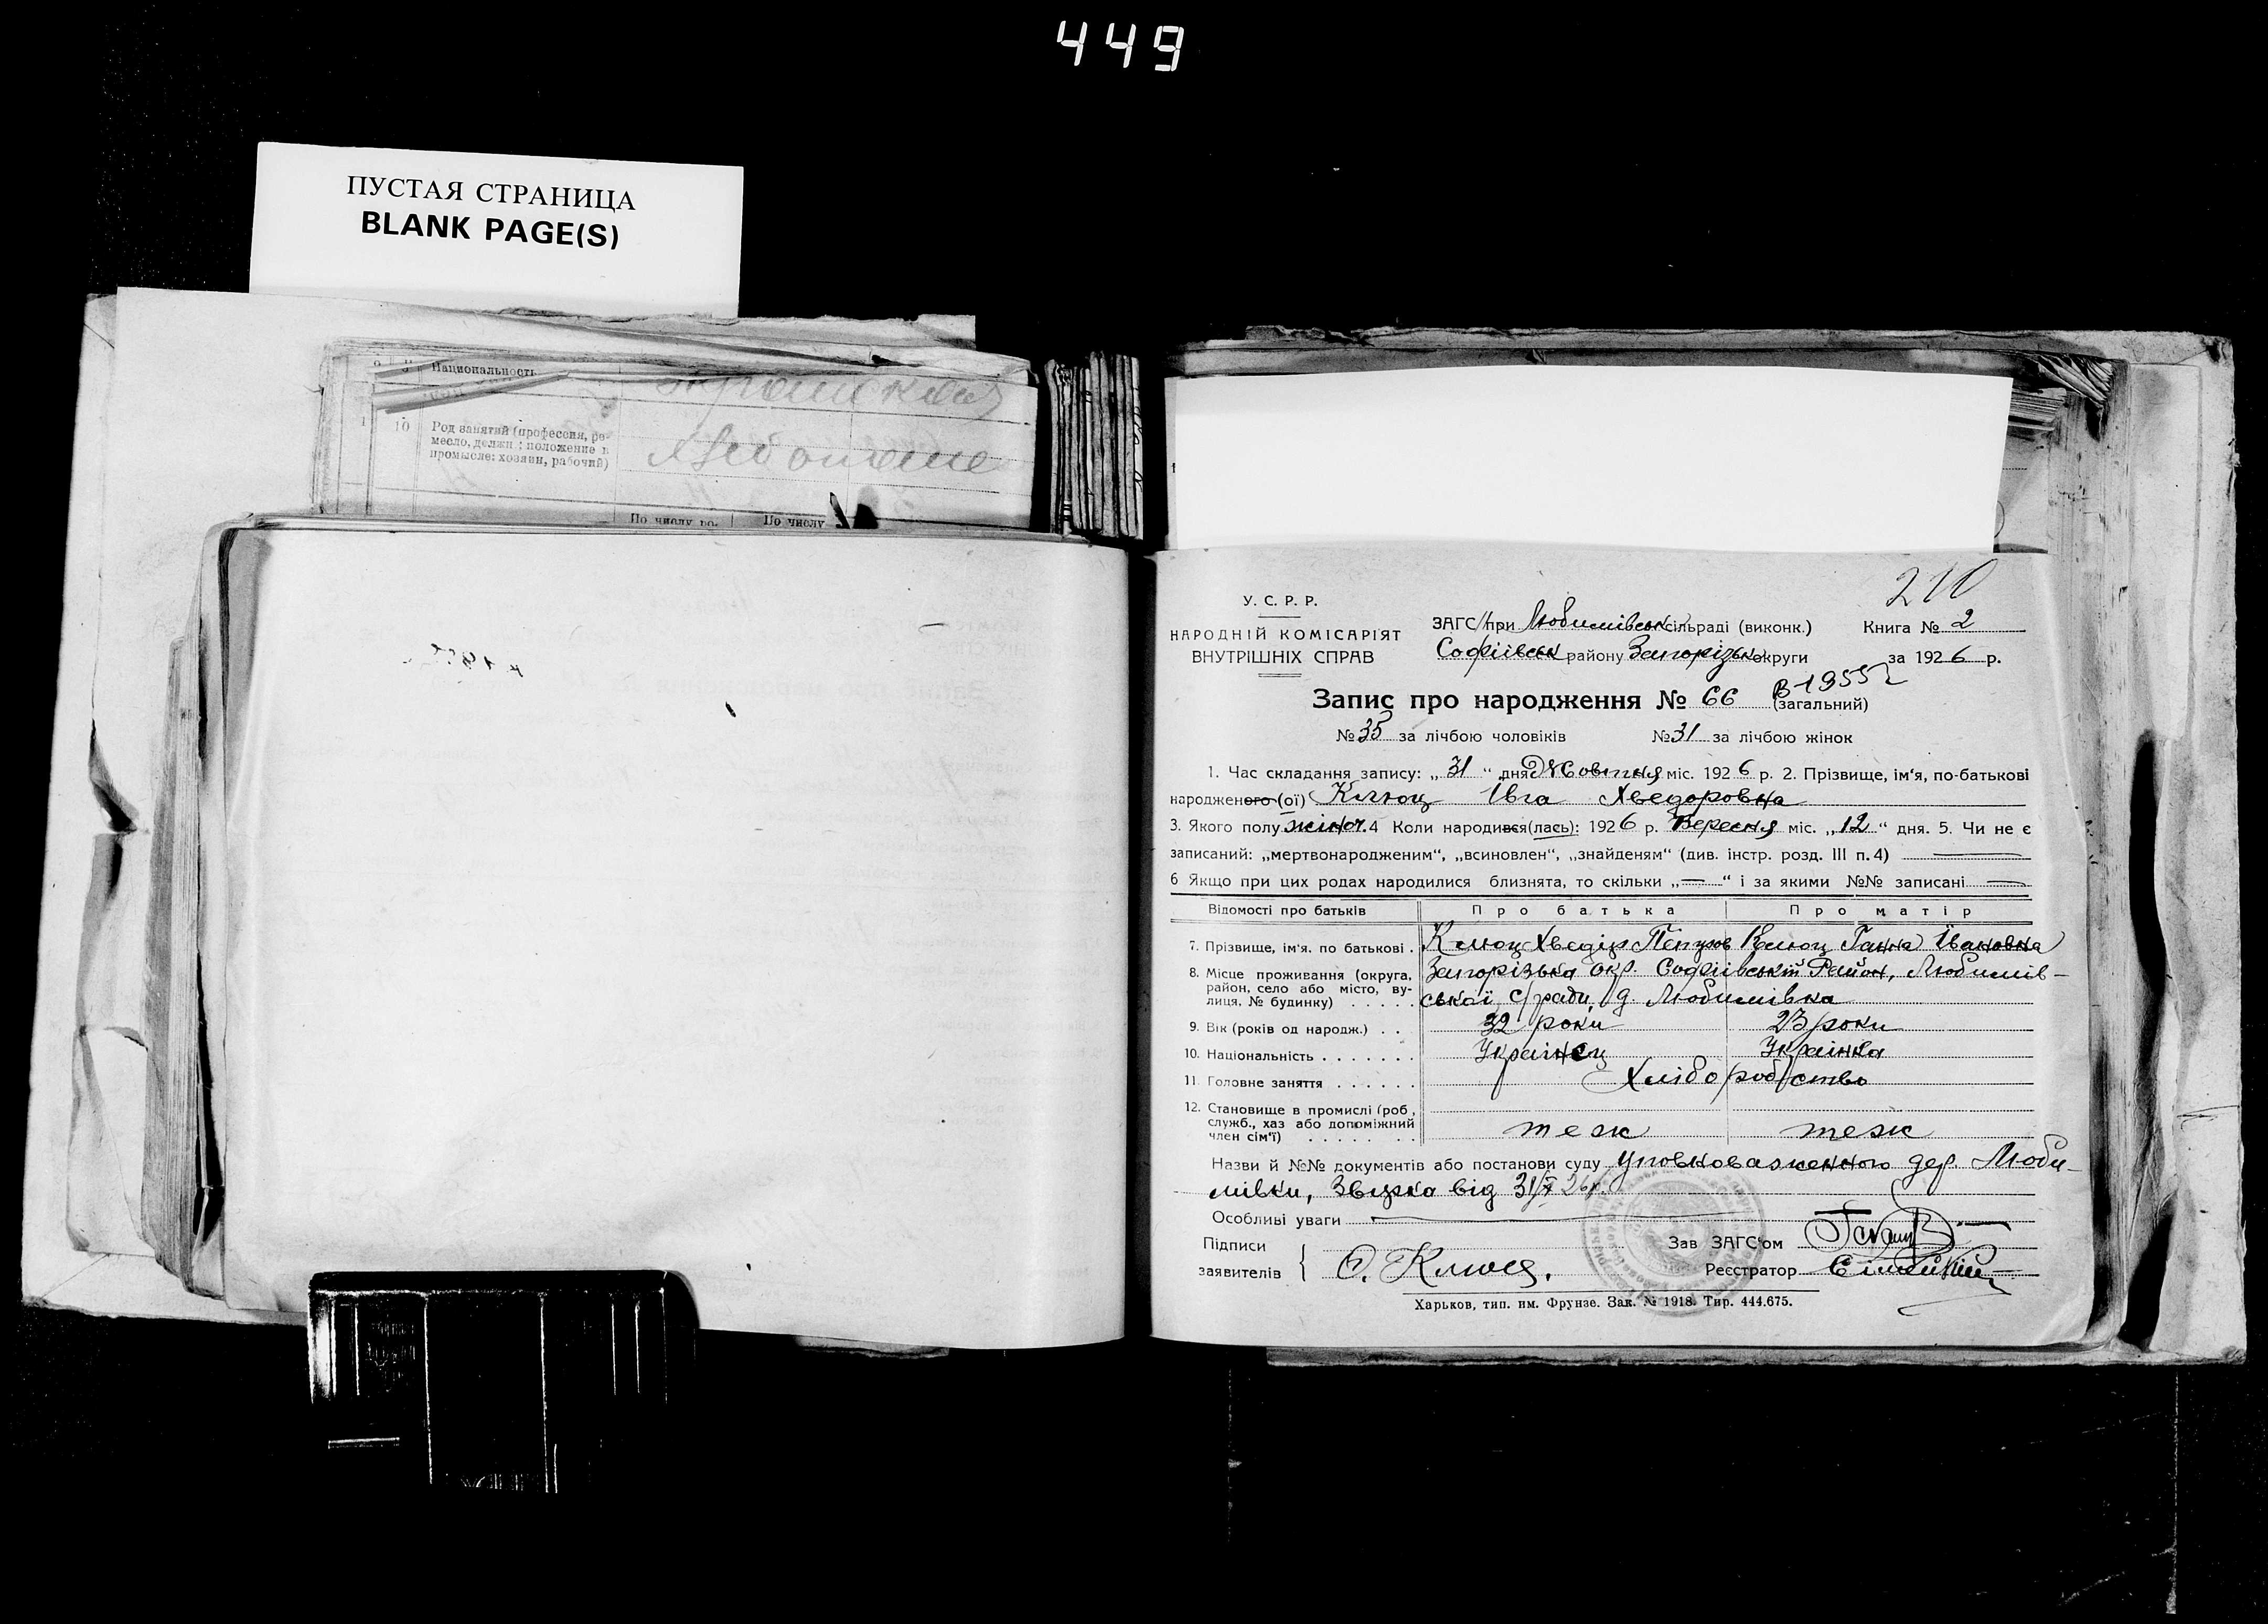 449
ПУСТАЯ СТРАНИЦА
BLANK PAGE(S)
Национальность
10 Род занятий (профессия, ре-
месло, должн.; положение в
промысле: хозяин, рабочий)
По числу ро. По числу
210
У. С. Р. Р.
НАРОДНІЙ КОМІСАРІЯТ
ВНУТРІШНІХ СПРАВ
ЗАГС при Любимівськ сільраді (виконк.) Книга № 2
Софіівськ району Запорізько округи за 1926 р.
В-1955
Запис про народження № 66 (загальний)
№ 35 за лічбою чоловіків № 31 за лічбою жінок
1. Час складання запису: „31“ дня Жовтня міс. 1926 р. 2. Прізвище, ім'я, по-батькові
народженого (ої) Клюц Івга Хведоровна
3. Якого полу жіноч. 4 Коли народився(лась): 1926 р. Вересня міс. „12“ дня. 5. Чи не є
записаний: „мертвонародженим“, „всиновлен“, „знайденям“ (див. інстр. розд. III п. 4) —
6 Якщо при цих родах народилися близнята, то скільки „—“ і за якими №№ записані —
Відомості про батьків Про батька Про матір
7. Прізвище, ім'я, по батькові . Клюц Хведір Клюц Ганна Івановна
8. Місце проживання (округа,
район, село або місто, ву-
лиця, № будинку) . . . . .
Запорізька окр. Софіівській Район, Любимів-
ськоі с/ради, д. Любимівка
9. Вік (років од народж.) . . 32 роки 23 роки
10. Національність . . . . . . . Украінец Украінка
11. Головне заняття . . . . . . Хліборобство
12. Становище в промислі (роб.,
служб., хаз або допоміжний
член сім'ї) . . . . . . . теж теж
Назви й №№ документів або постанови суду Уповноваженного дер. Люби-
мівки, Звізка від 31/X 26р.
Особливі уваги
Підписи
заявителів { Ф. Клюц.
Зав ЗАГС'ом
Реєстратор
Харьков, тип. им. Фрунзе. Зак. № 1918. Тир. 444.675.